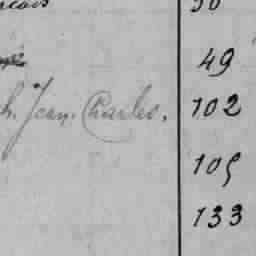 49
h. Jean. Charles. 102
105
133